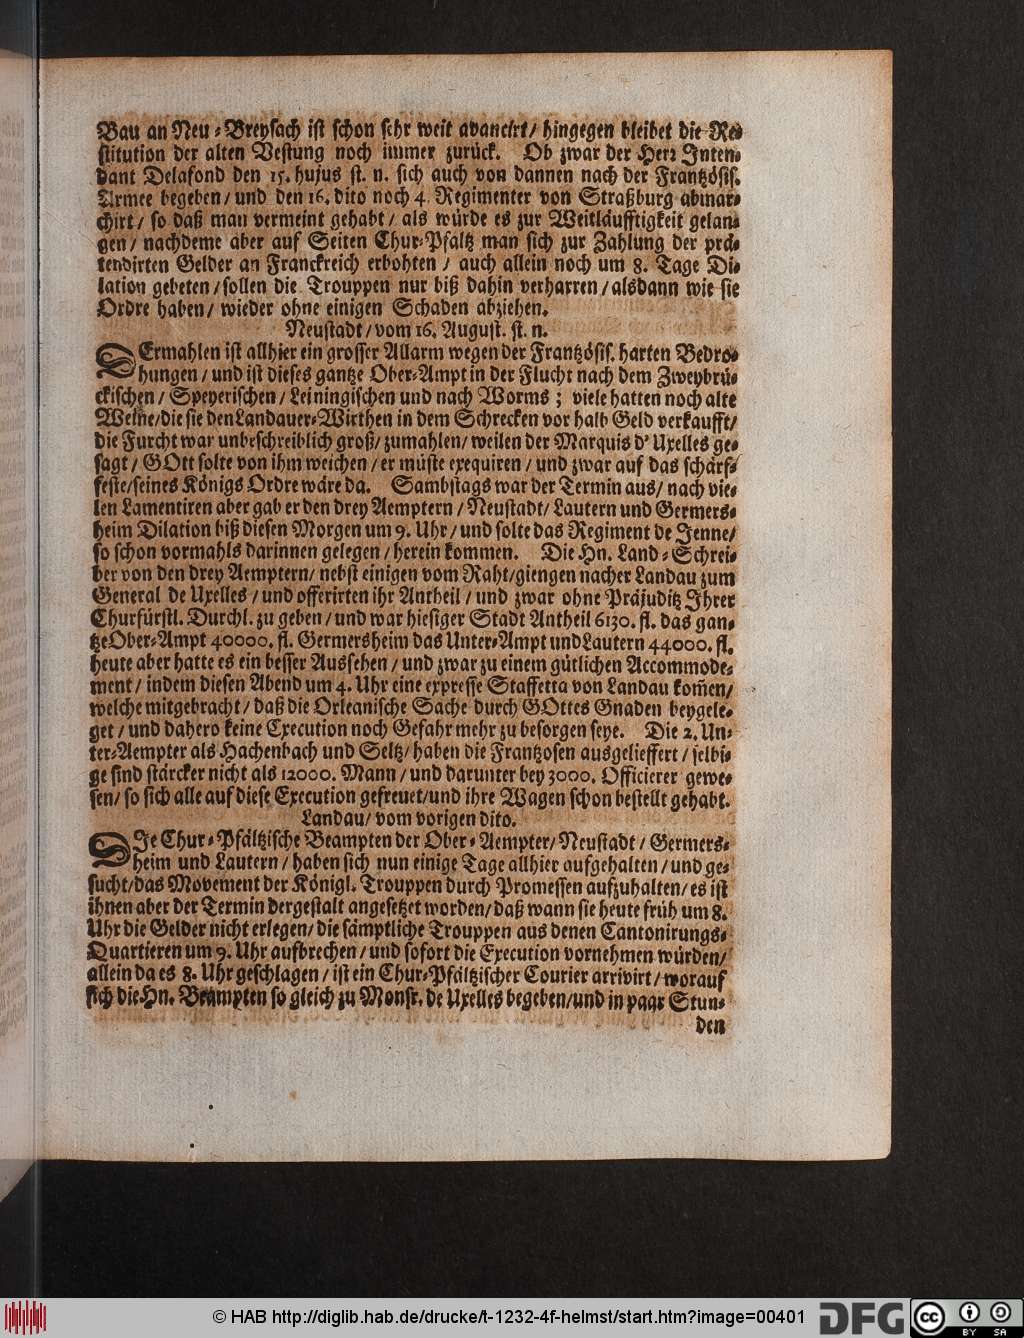 Bau an Neu-Breysach ist schon sehr weit avancirt/ hingegen bleibet die Re-
stitution der alten Vestung noch immer zurück. Ob zwar der Herr Inten-
dant Delafond den 15. hujus st. n. sich auch von dannen nach der Frantzösis.
Armee begeben/ und den 16. dito noch 4. Regimenter von Straßburg abmar-
chirt/ so daß man vermeint gehabt/ als würde es zur Weitläufftigkeit gelan-
gen/ nachdeme aber auf Seiten Chur-Pfaltz man sich zur Zahlung der præ-
tendirten Gelder an Franckreich erbohten/ auch allein noch um 8. Tage Di-
lation gebeten/ sollen die Trouppen nur biß dahin verharren/ alsdann wie sie
Ordre haben/ wieder ohne einigen Schaden abziehen.
Neustadt/ vom 16. August. st. n.
DErmahlen ist allhier ein grosser Allarm wegen der Frantzösis. harten Bedro-
hungen/ und ist dieses gantze Ober-Ampt in der Flucht nach dem Zweybrü-
ckischen/ Speyerischen/ Leiningischen und nach Worms; viele hatten noch alte
Weine/ die sie den Landauer-Wirthen in dem Schrecken vor halb Geld verkaufft/
die Furcht war unbeschreiblich groß/ zumahlen/ weilen der Marquis d' Uxelles ge-
sagt/ GOtt solte von ihm weichen/ er müste exequiren/ und zwar auf das schärf-
feste/ seines Königs Ordre wäre da. Sambstags war der Termin aus/ nach vie-
len Lamentiren aber gab er den drey Aemptern/ Neustadt/ Lautern und Germers-
heim Dilation biß diesen Morgen um 9. Uhr/ und solte das Regiment de Jenne/
so schon vormahls darinnen gelegen/ herein kommen. Die Hn. Land-Schrei-
ber von den drey Aemptern/ nebst einigen vom Raht/ giengen nacher Landau zum
General de Uxelles/ und offerirten ihr Antheil/ und zwar ohne Präjuditz Ihrer
Churfürstl. Durchl. zu geben/ und war hiesiger Stadt Antheil 6130. fl. das gan-
tze Ober-Ampt 40000. fl. Germersheim das Unter-Ampt und Lautern 44000. fl.
heute aber hatte es ein besser Aussehen/ und zwar zu einem gütlichen Accommode-
ment/ indem diesen Abend um 4. Uhr eine expresse Staffetta von Landau kom̃en/
welche mitgebracht/ daß die Orleanische Sache durch GOttes Gnaden beygele-
get/ und dahero keine Execution noch Gefahr mehr zu besorgen seye. Die 2. Un-
ter-Aempter als Hachenbach und Seltz/ haben die Frantzosen ausgelieffert/ selbi-
ge sind stärcker nicht als 12000. Mann/ und darunter bey 3000. Officierer gewe-
sen/ so sich alle auf diese Execution gefreuet/ und ihre Wagen schon bestellt gehabt.
Landau/ vom vorigen dito.
DIe Chur-Pfältzische Beampten der Ober-Aempter/ Neustadt/ Germers-
heim und Lautern/ haben sich nun einige Tage allhier aufgehalten/ und ge-
sucht/ das Movement der Königl. Trouppen durch Promessen aufzuhalten/ es ist
ihnen aber der Termin dergestalt angesetzet worden/ daß wann sie heute früh um 8.
Uhr die Gelder nicht erlegen/ die sämptliche Trouppen aus denen Cantonirungs-
Quartieren um 9. Uhr aufbrechen/ und sofort die Execution vornehmen würden/
allein da es 8. Uhr geschlagen/ ist ein Chur-Pfältzischer Courier arrivirt/ worauf
sich die Hn. Beampten so gleich zu Monsr. de Uxelles begeben/ und in paar Stun-
den
© HAB http://diglib.hab.de/drucke/t-1232-4f-helmst/start.htm?image=00401
DFG
cc
BY SA